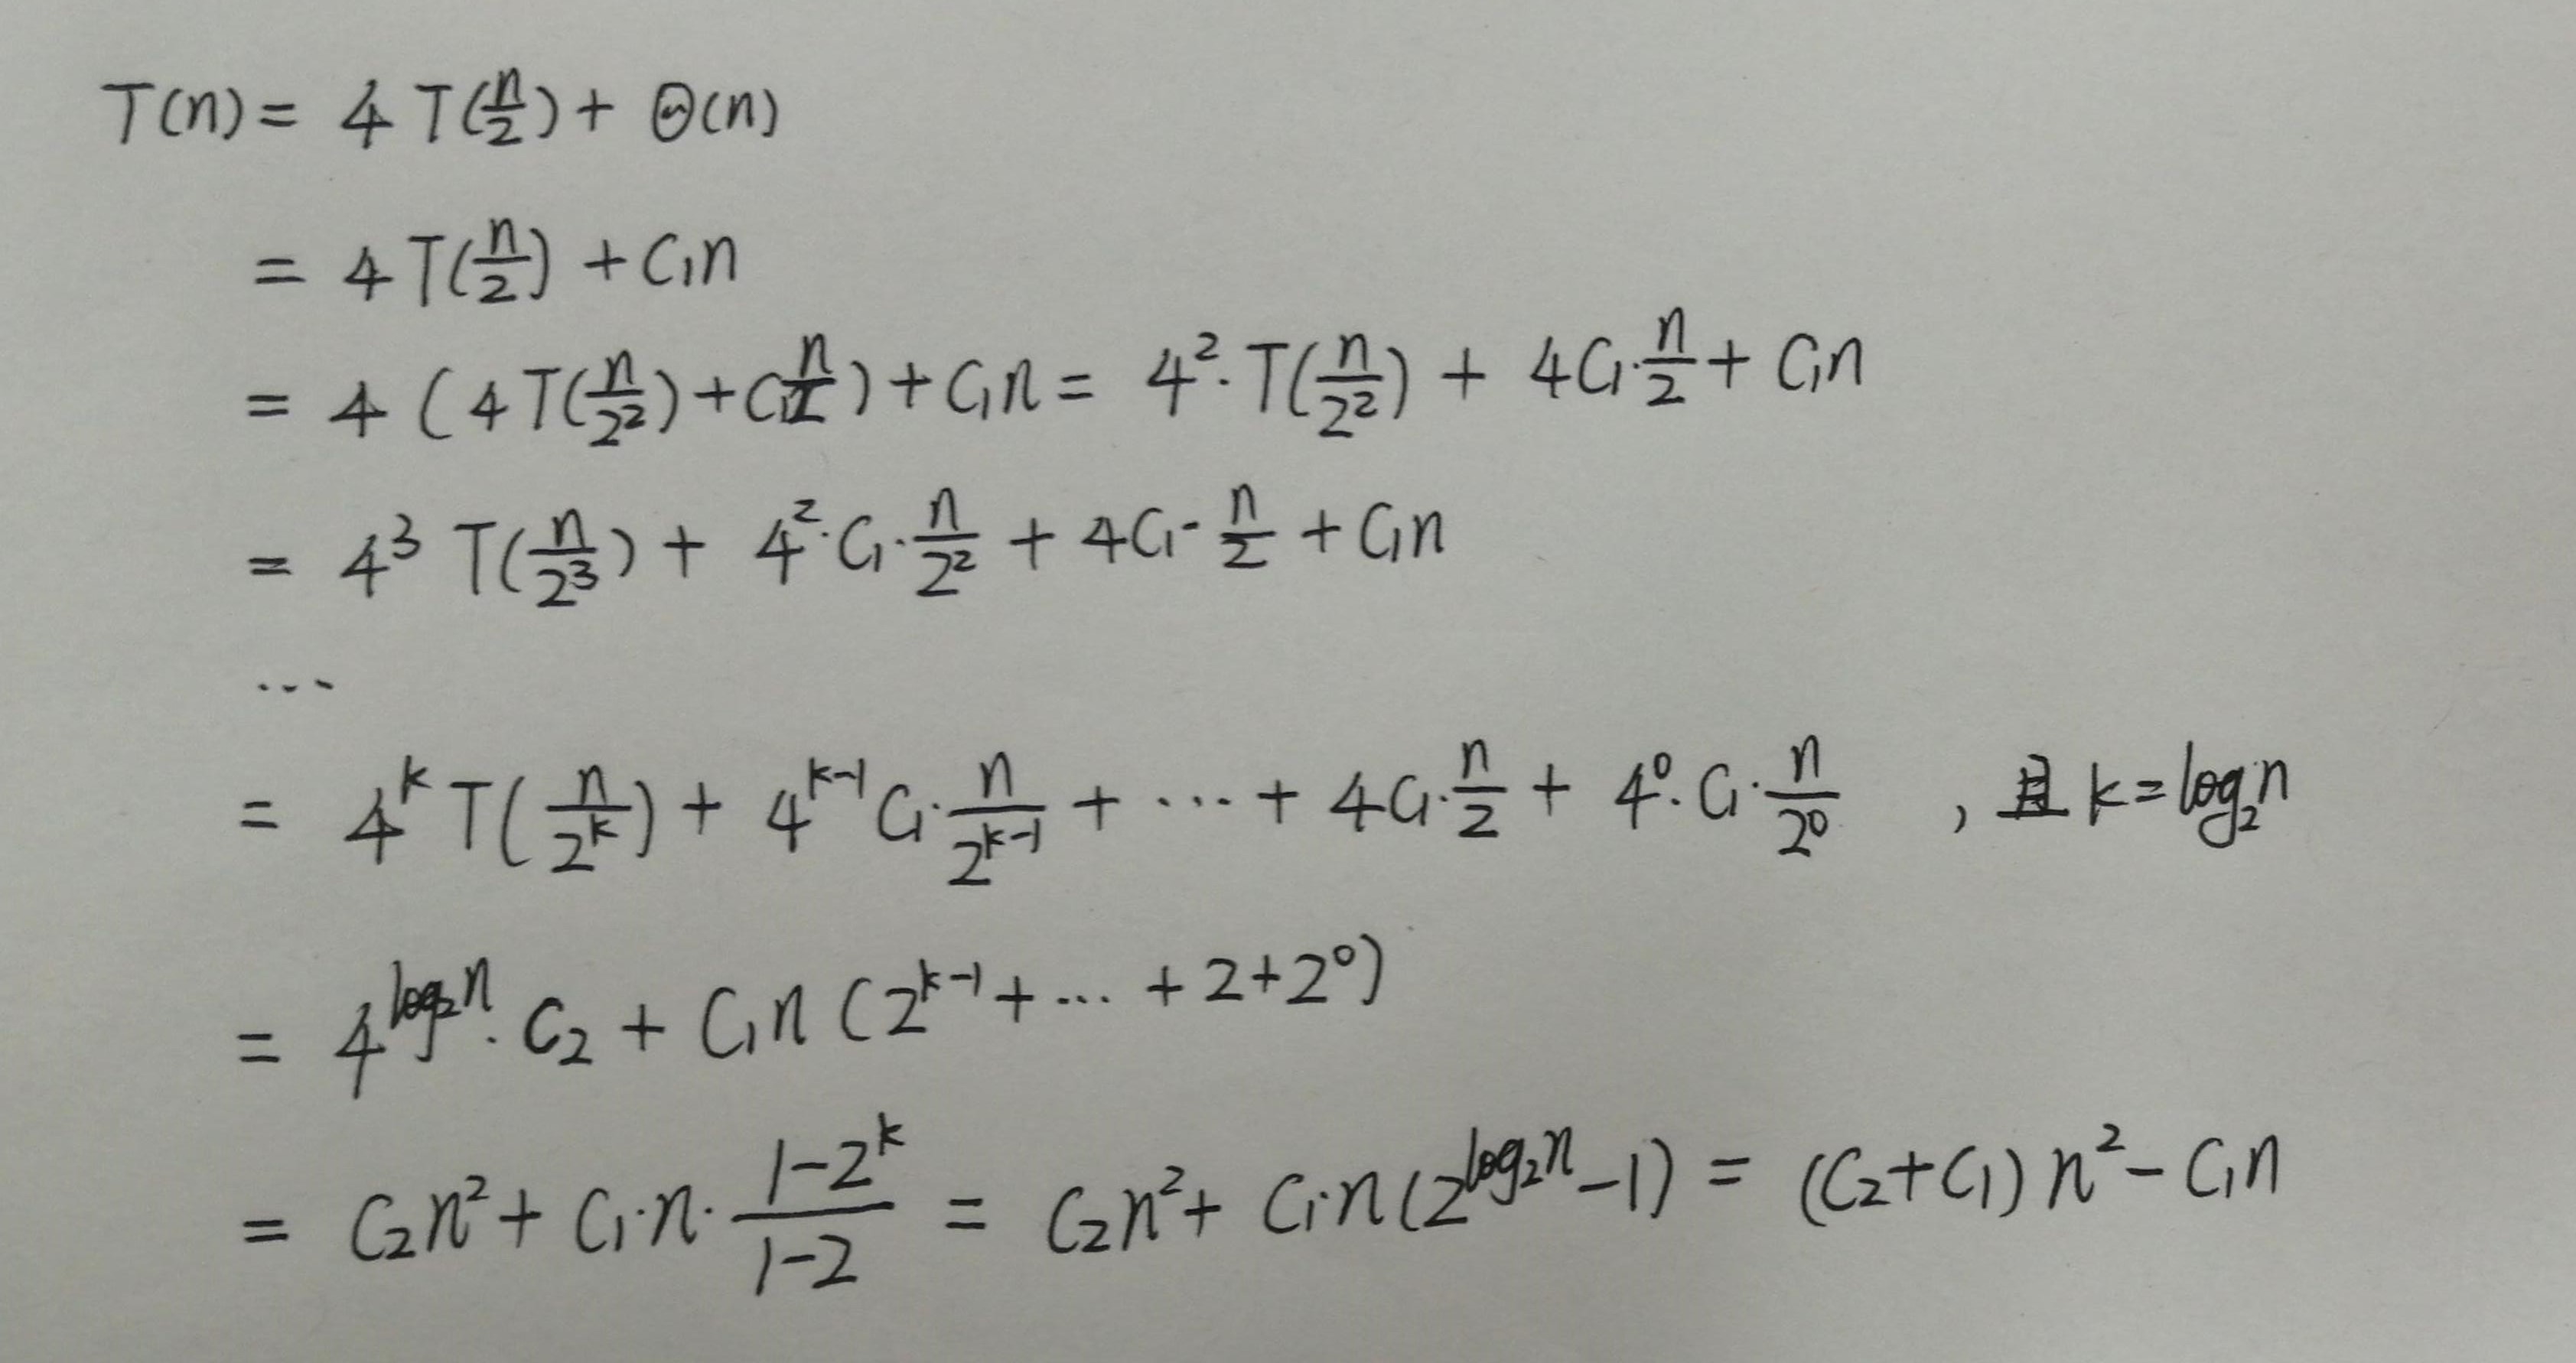 T(n) = 4 T(n/2) + Θ(n)
= 4 T(n/2) + C₁n
= 4 ( 4 T(n/2²) + C₁n/2 ) + C₁n = 4² · T(n/2²) + 4C₁ · n/2 + C₁n
= 4³ T(n/2³) + 4² · C₁ · n/2² + 4C₁ · n/2 + C₁n
...
= 4ᵏ T(n/2ᵏ) + 4ᵏ⁻¹ C₁ · n/2ᵏ⁻¹ + ... + 4C₁ · n/2 + 4⁰ · C₁ · n/2⁰ , 且 k = log₂n
= 4^(log₂n) · C₂ + C₁n (2ᵏ⁻¹ + ... + 2 + 2⁰)
= C₂n² + C₁ · n · (1-2ᵏ)/(1-2) = C₂n² + C₁ · n (2^(log₂n) - 1) = (C₂ + C₁) n² - C₁n